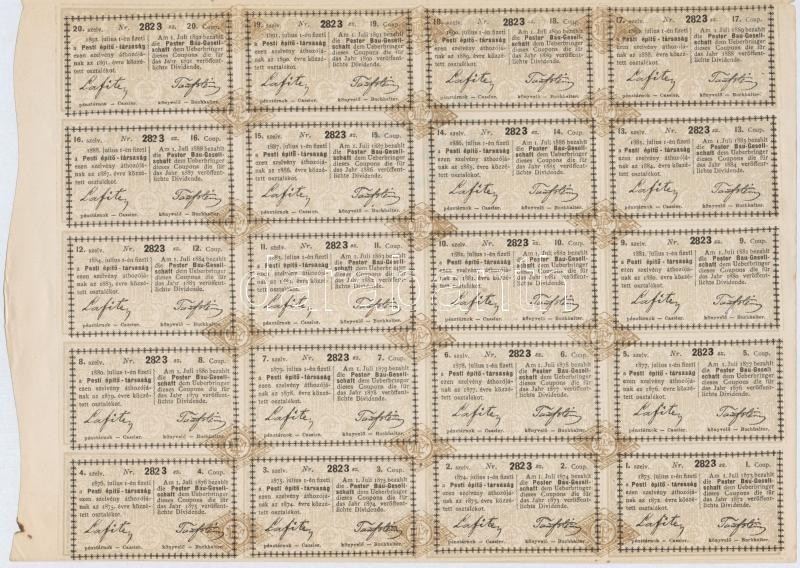 20. szelv. Nr. 2823 sz. 20. Coup.
1892. julius 1-én fizeti
a Pesti épitő-társaság
ezen szelvény áthozójá-
nak az 1891. évre közzé-
tett osztalékot.
Am 1. Juli 1892 bezahlt
die Pester Bau-Gesell-
schaft dem Ueberbringer
dieses Coupons die für
das Jahr 1891 veröffent-
lichte Dividende.
pénztárnok — Cassier. könyvelő — Buchhalter.
19. szelv. Nr. 2823 sz. 19. Coup.
1891. julius 1-én fizeti
a Pesti épitő-társaság
ezen szelvény áthozójá-
nak az 1890. évre közzé-
tett osztalékot.
Am 1. Juli 1891 bezahlt
die Pester Bau-Gesell-
schaft dem Ueberbringer
dieses Coupons die für
das Jahr 1890 veröffent-
lichte Dividende.
pénztárnok — Cassier. könyvelő — Buchhalter.
18. szelv. Nr. 2823 sz. 18. Coup.
1890. julius 1-én fizeti
a Pesti épitő-társaság
ezen szelvény áthozójá-
nak az 1889. évre közzé-
tett osztalékot.
Am 1. Juli 1890 bezahlt
die Pester Bau-Gesell-
schaft dem Ueberbringer
dieses Coupons die für
das Jahr 1889 veröffent-
lichte Dividende.
pénztárnok — Cassier. könyvelő — Buchhalter.
17. szelv. Nr. 2823 sz. 17. Coup.
1889. julius 1-én fizeti
a Pesti épitő-társaság
ezen szelvény áthozójá-
nak az 1888. évre közzé-
tett osztalékot.
Am 1. Juli 1889 bezahlt
die Pester Bau-Gesell-
schaft dem Ueberbringer
dieses Coupons die für
das Jahr 1888 veröffent-
lichte Dividende.
pénztárnok — Cassier. könyvelő — Buchhalter.
16. szelv. Nr. 2823 sz. 16. Coup.
1888. julius 1-én fizeti
a Pesti épitő-társaság
ezen szelvény áthozójá-
nak az 1887. évre közzé-
tett osztalékot.
Am 1. Juli 1888 bezahlt
die Pester Bau-Gesell-
schaft dem Ueberbringer
dieses Coupons die für
das Jahr 1887 veröffent-
lichte Dividende.
pénztárnok — Cassier. könyvelő — Buchhalter.
15. szelv. Nr. 2823 sz. 15. Coup.
1887. julius 1-én fizeti
a Pesti épitő-társaság
ezen szelvény áthozójá-
nak az 1886. évre közzé-
tett osztalékot.
Am 1. Juli 1887 bezahlt
die Pester Bau-Gesell-
schaft dem Ueberbringer
dieses Coupons die für
das Jahr 1886 veröffent-
lichte Dividende.
pénztárnok — Cassier. könyvelő — Buchhalter.
14. szelv. Nr. 2823 sz. 14. Coup.
1886. julius 1-én fizeti
a Pesti épitő-társaság
ezen szelvény áthozójá-
nak az 1885. évre közzé-
tett osztalékot.
Am 1. Juli 1886 bezahlt
die Pester Bau-Gesell-
schaft dem Ueberbringer
dieses Coupons die für
das Jahr 1885 veröffent-
lichte Dividende.
pénztárnok — Cassier. könyvelő — Buchhalter.
13. szelv. Nr. 2823 sz. 13. Coup.
1885. julius 1-én fizeti
a Pesti épitő-társaság
ezen szelvény áthozójá-
nak az 1884. évre közzé-
tett osztalékot.
Am 1. Juli 1885 bezahlt
die Pester Bau-Gesell-
schaft dem Ueberbringer
dieses Coupons die für
das Jahr 1884 veröffent-
lichte Dividende.
pénztárnok — Cassier. könyvelő — Buchhalter.
12. szelv. Nr. 2823 sz. 12. Coup.
1884. julius 1-én fizeti
a Pesti épitő-társaság
ezen szelvény áthozójá-
nak az 1883. évre közzé-
tett osztalékot.
Am 1. Juli 1884 bezahlt
die Pester Bau-Gesell-
schaft dem Ueberbringer
dieses Coupons die für
das Jahr 1883 veröffent-
lichte Dividende.
pénztárnok — Cassier. könyvelő — Buchhalter.
11. szelv. Nr. 2823 sz. 11. Coup.
1883. julius 1-én fizeti
a Pesti épitő-társaság
ezen szelvény áthozójá-
nak az 1882. évre közzé-
tett osztalékot.
Am 1. Juli 1883 bezahlt
die Pester Bau-Gesell-
schaft dem Ueberbringer
dieses Coupons die für
das Jahr 1882 veröffent-
lichte Dividende.
pénztárnok — Cassier. könyvelő — Buchhalter.
10. szelv. Nr. 2823 sz. 10. Coup.
1882. julius 1-én fizeti
a Pesti épitő-társaság
ezen szelvény áthozójá-
nak az 1881. évre közzé-
tett osztalékot.
Am 1. Juli 1882 bezahlt
die Pester Bau-Gesell-
schaft dem Ueberbringer
dieses Coupons die für
das Jahr 1881 veröffent-
lichte Dividende.
pénztárnok — Cassier. könyvelő — Buchhalter.
9. szelv. Nr. 2823 sz. 9. Coup.
1881. julius 1-én fizeti
a Pesti épitő-társaság
ezen szelvény áthozójá-
nak az 1880. évre közzé-
tett osztalékot.
Am 1. Juli 1881 bezahlt
die Pester Bau-Gesell-
schaft dem Ueberbringer
dieses Coupons die für
das Jahr 1880 veröffent-
lichte Dividende.
pénztárnok — Cassier. könyvelő — Buchhalter.
darabanth
8. szelv. Nr. 2823 sz. 8. Coup.
1880. julius 1-én fizeti
a Pesti épitő-társaság
ezen szelvény áthozójá-
nak az 1879. évre közzé-
tett osztalékot.
Am 1. Juli 1880 bezahlt
die Pester Bau-Gesell-
schaft dem Ueberbringer
dieses Coupons die für
das Jahr 1879 veröffent-
lichte Dividende.
pénztárnok — Cassier. könyvelő — Buchhalter.
7. szelv. Nr. 2823 sz. 7. Coup.
1879. julius 1-én fizeti
a Pesti épitő-társaság
ezen szelvény áthozójá-
nak az 1878. évre közzé-
tett osztalékot.
Am 1. Juli 1879 bezahlt
die Pester Bau-Gesell-
schaft dem Ueberbringer
dieses Coupons die für
das Jahr 1878 veröffent-
lichte Dividende.
pénztárnok — Cassier. könyvelő — Buchhalter.
6. szelv. Nr. 2823 sz. 6. Coup.
1878. julius 1-én fizeti
a Pesti épitő-társaság
ezen szelvény áthozójá-
nak az 1877. évre közzé-
tett osztalékot.
Am 1. Juli 1878 bezahlt
die Pester Bau-Gesell-
schaft dem Ueberbringer
dieses Coupons die für
das Jahr 1877 veröffent-
lichte Dividende.
pénztárnok — Cassier. könyvelő — Buchhalter.
5. szelv. Nr. 2823 sz. 5. Coup.
1877. julius 1-én fizeti
a Pesti épitő-társaság
ezen szelvény áthozójá-
nak az 1876. évre közzé-
tett osztalékot.
Am 1. Juli 1877 bezahlt
die Pester Bau-Gesell-
schaft dem Ueberbringer
dieses Coupons die für
das Jahr 1876 veröffent-
lichte Dividende.
pénztárnok — Cassier. könyvelő — Buchhalter.
4. szelv. Nr. 2823 sz. 4. Coup.
1876. julius 1-én fizeti
a Pesti épitő-társaság
ezen szelvény áthozójá-
nak az 1875. évre közzé-
tett osztalékot.
Am 1. Juli 1876 bezahlt
die Pester Bau-Gesell-
schaft dem Ueberbringer
dieses Coupons die für
das Jahr 1875 veröffent-
lichte Dividende.
pénztárnok — Cassier. könyvelő — Buchhalter.
3. szelv. Nr. 2823 sz. 3. Coup.
1875. julius 1-én fizeti
a Pesti épitő-társaság
ezen szelvény áthozójá-
nak az 1874. évre közzé-
tett osztalékot.
Am 1. Juli 1875 bezahlt
die Pester Bau-Gesell-
schaft dem Ueberbringer
dieses Coupons die für
das Jahr 1874 veröffent-
lichte Dividende.
pénztárnok — Cassier. könyvelő — Buchhalter.
2. szelv. Nr. 2823 sz. 2. Coup.
1874. julius 1-én fizeti
a Pesti épitő-társaság
ezen szelvény áthozójá-
nak az 1873. évre közzé-
tett osztalékot.
Am 1. Juli 1874 bezahlt
die Pester Bau-Gesell-
schaft dem Ueberbringer
dieses Coupons die für
das Jahr 1873 veröffent-
lichte Dividende.
pénztárnok — Cassier. könyvelő — Buchhalter.
1. szelv. Nr. 2823 sz. 1. Coup.
1873. julius 1-én fizeti
a Pesti épitő-társaság
ezen szelvény áthozójá-
nak az 1872. évre közzé-
tett osztalékot.
Am 1. Juli 1873 bezahlt
die Pester Bau-Gesell-
schaft dem Ueberbringer
dieses Coupons die für
das Jahr 1872 veröffent-
lichte Dividende.
pénztárnok — Cassier. könyvelő — Buchhalter.